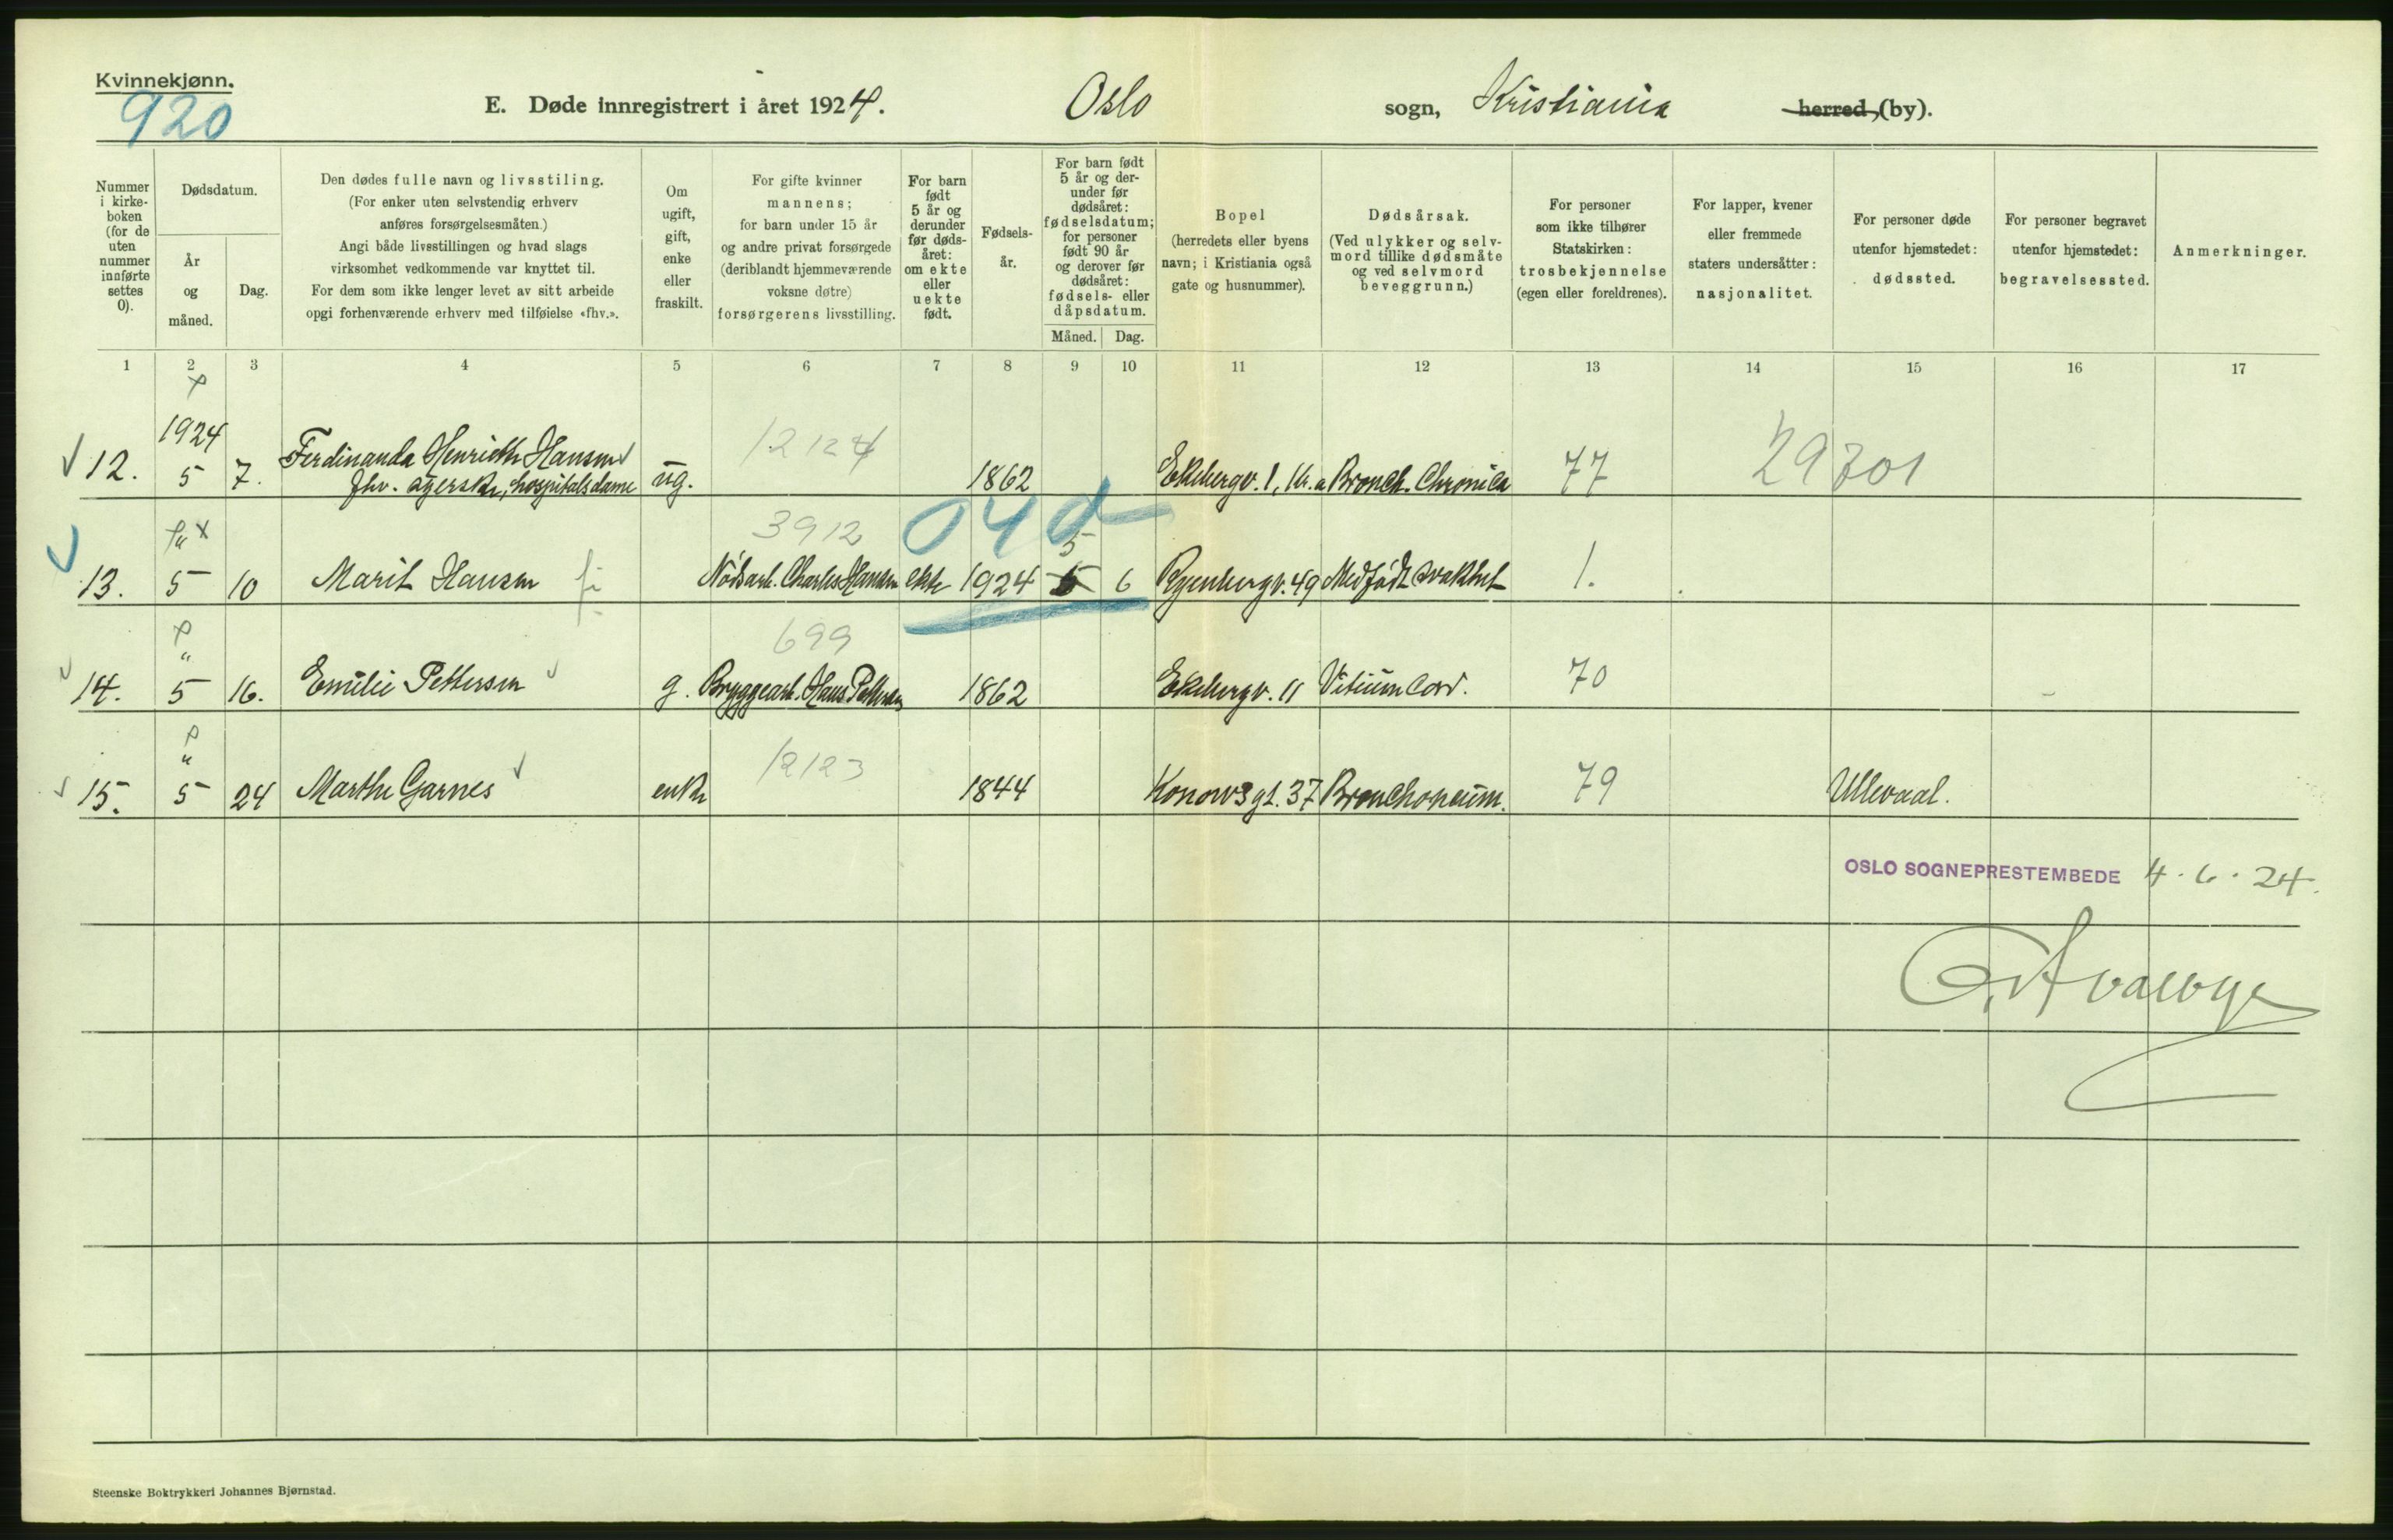 Kvinnekjønn.
920
E. Døde innregistrert i året 1924.
Oslo sogn, Kristiania herred, (by).
Nummer i kirke- boken (for de uten nummer innførte settes 0).
Dødsdatum.
År og måned.
Dag.
Den dødes fulle navn og livsstiling.
(For enker uten selvstendig erhverv
anføres forsørgelsesmåten.)
Angi både livsstillingen og hvad slags
virksomhet vedkommende var knyttet til.
For dem som ikke lenger levet av sitt arbeide
opgi forhenværende erhverv med tilføielse «fhv.».
Om ugift, gift, enke eller fraskilt.
For gifte kvinner
mannens;
for barn under 15 år
og andre privat forsørgede
(deriblandt hjemmeværende
voksne døtre)
forsørgerens livsstilling.
For barn født 5 år og derunder før døds- året: om ekte eller uekte født.
Fødsels- år.
For barn født
5 år og der-
under før
dødsåret:
fødselsdatum;
for personer
født 90 år
og derover før
dødsåret:
fødsels- eller
dåpsdatum.
Måned.
Dag.
Bopel
(herredets eller byens
navn; i Kristiania også
gate og husnummer).
Dødsårsak.
(Ved ulykker og selv-
mord tillike dødsmåte
og ved selvmord
beveggrunn.)
For personer
som ikke tilhører
Statskirken:
trosbekjennelse
(egen eller foreldrenes).
For lapper, kvener
eller fremmede
staters undersåtter:
nasjonalitet.
For personer døde
utenfor hjemstedet:
dødssted.
For personer begravet
utenfor hjemstedet:
begravelsessted.
Anmerkninger.
1 2 3 4 5 6 7 8 9 10 11 12 13 14 15 16 17
1924
12. 5 7. Ferdinanda Henriette Hansen ug. 12124 1862 Ekebergv. 1, Kr.a Bronch. Chronica 77 29301
fhv. syerske, hospitalsdame
3912
13. 5 10 Marit Hansen Nødsarb. Charles Hansen ekte 1924 5 6 Ryenbergv. 49 Medfødt svakhet 1.
699
14. 5 16. Emilie Pettersen g. Bryggearb. Hans Pettersen 1862 Ekebergv. 11 Vitium Cord. 70
12123
15. 5 24 Marthe Garnes enke 1844 Konowsgt. 37 Bronchopneum. 79 Ullevaal.
OSLO SOGNEPRESTEMBEDE 4.6.24.
Steenske Boktrykkeri Johannes Bjørnstad.